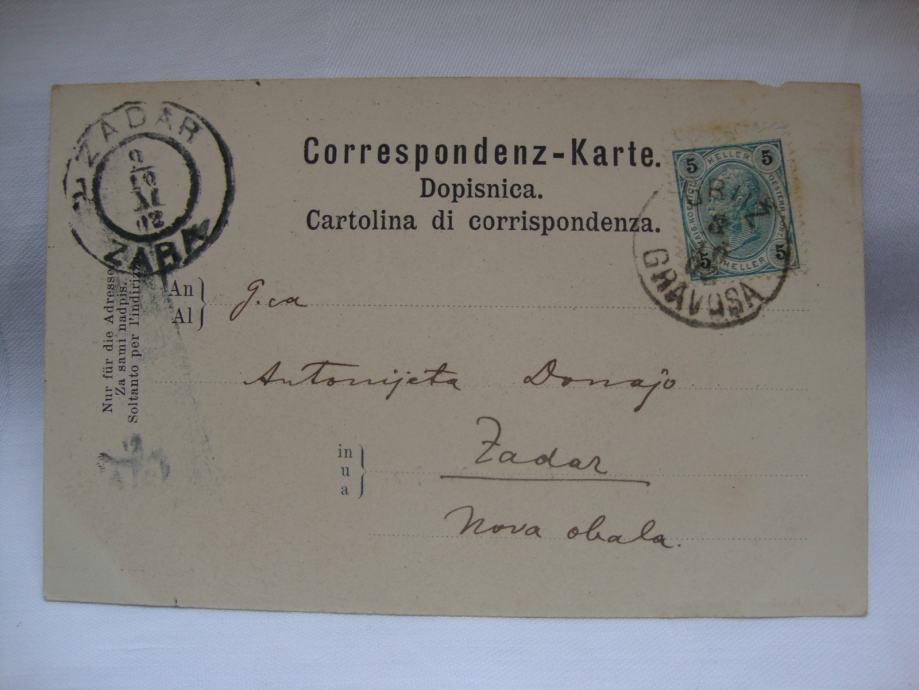 Correspondenz-Karte.
Dopisnica.
Cartolina di corrispondenza.
ZADAR
ZARA
5 HELLER 5
5 HELLER 5
GRAVOSA
Nur für die Adresse
Za sami nadpis.
Soltanto per l'indirizzo
An
Al
G.ca
Antonijeta Donajo
in
u
a
Zadar
Nova obala.